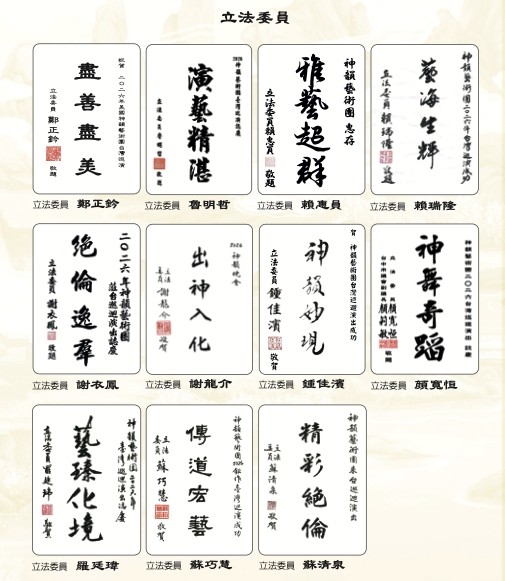 立法委員
祝賀 二〇二六年美國神韻藝術團台灣巡演
盡善盡美
立法委員 鄭正鈐 敬題
立法委員 鄭正鈐
演藝精湛
立法委員魯明哲 敬題
立法委員 魯明哲
神韻藝術團 惠存
雅藝超群
立法委員賴惠員 敬題
立法委員 賴惠員
神韻藝術團二〇二六年台灣巡演成功
藝海生輝
立法委員 賴瑞隆 敬題
立法委員 賴瑞隆
二〇二六年神韻藝術團
蒞台巡迴演出誌慶
絕倫逸群
立法委員 謝衣鳳 敬題
立法委員 謝衣鳳
2026 神韻晚會
出神入化
立法委員 謝龍介 敬賀
立法委員 謝龍介
賀 神韻藝術團台灣巡迴演出成功
神韻妙現
立法委員 鍾佳濱 敬賀
立法委員 鍾佳濱
神韻藝術團二〇二六台灣巡迴演出 誌慶
神舞奇蹈
立法委員 顏寬恒
台中市議會副議長 顏莉敏 敬題
立法委員 顏寬恒
神韻藝術團二〇二六年
臺灣巡迴演出誌慶
藝臻化境
立法委員 羅廷瑋 敬賀
立法委員 羅廷瑋
傳道宏藝
立法委員 蘇巧慧 敬賀
立法委員 蘇巧慧
神韻藝術團來台巡迴演出
精彩絕倫
立法委員 蘇清泉 敬賀
立法委員 蘇清泉